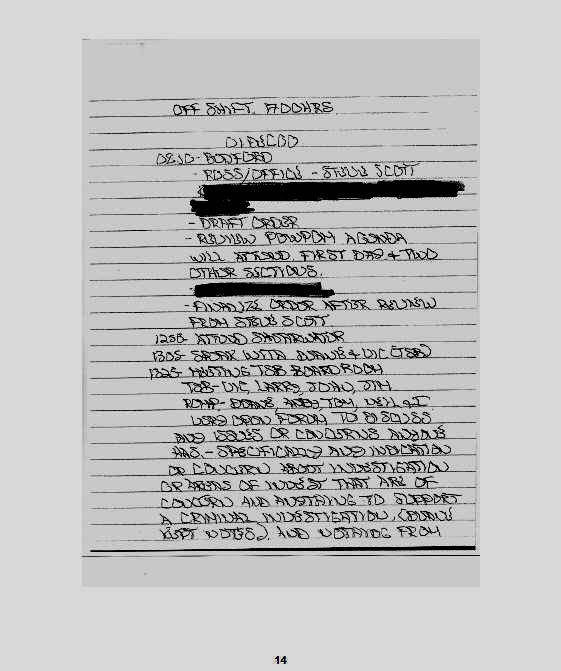 OFF SHIFT. 1700HRS.
01DEC00
0830- BEDFORD
- ROSS/OFFICE - STEVE SCOTT
- DRAFT ORDER
- REVIEW AGENDA
WILL ATTEND FIRST DAY & TWO
OTHER SECTIONS.
-
- FINALIZE ORDER AFTER REVIEW
FROM STEVE SCOTT
1255- ATTEND SHEARWATER
1305- SPEAK WITH DUANE & VIC (TSB)
1325- MEETING TSB BOARDROOM
TSB- VIC, LARRY, JOHN, JIM
RCMP- DUANE, ANDY, TOM, & I.
VERY OPEN FORUM TO DISCUSS
ANY ISSUES OR CONCERNS ANYONE
HAS. - SPECIFICALLY ANY INDICATION
OR CONCERN ABOUT INVESTIGATION
OR AREAS OF INVEST THAT ARE OF
CONCERN AND ANYTHING TO SUPPORT
A CRIMINAL INVESTIGATION. (DUANE
KEPT NOTES). AND NOTHING FROM
14